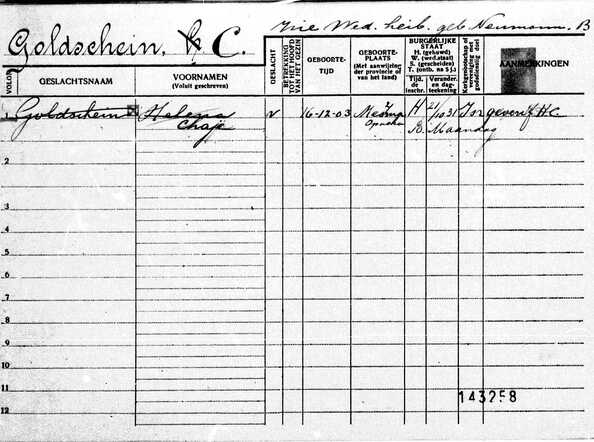 Goldschein, H C.
Zie Wed. heib. geb. Neumann. B
VOLGNR
GESLACHTSNAAM
VOORNAMEN
(Voluit geschreven)
GESLACHT
BETREKKING TOT HET HOOFD VAN HET GEZIN
GEBOORTE-TIJD
GEBOORTE-PLAATS
(Met aanwijzing der provincie of van het land)
BURGERLIJKE STAAT
H. (gehuwd)
W. (wed.staat)
S. (gescheiden)
T. (ontb. na 5 j.)
Tijd. de inschr.
Verander. en dag-teekening
Kerkgenootschap of vereeniging met godsdienstig doel
AANMERKINGEN
1 Goldschein Helena Chaje V 16-12-03 H 21/10 31 Isr geverif H.C.
S. Maandag
2
3
4
5
6
7
8
9
10
11
143258
12